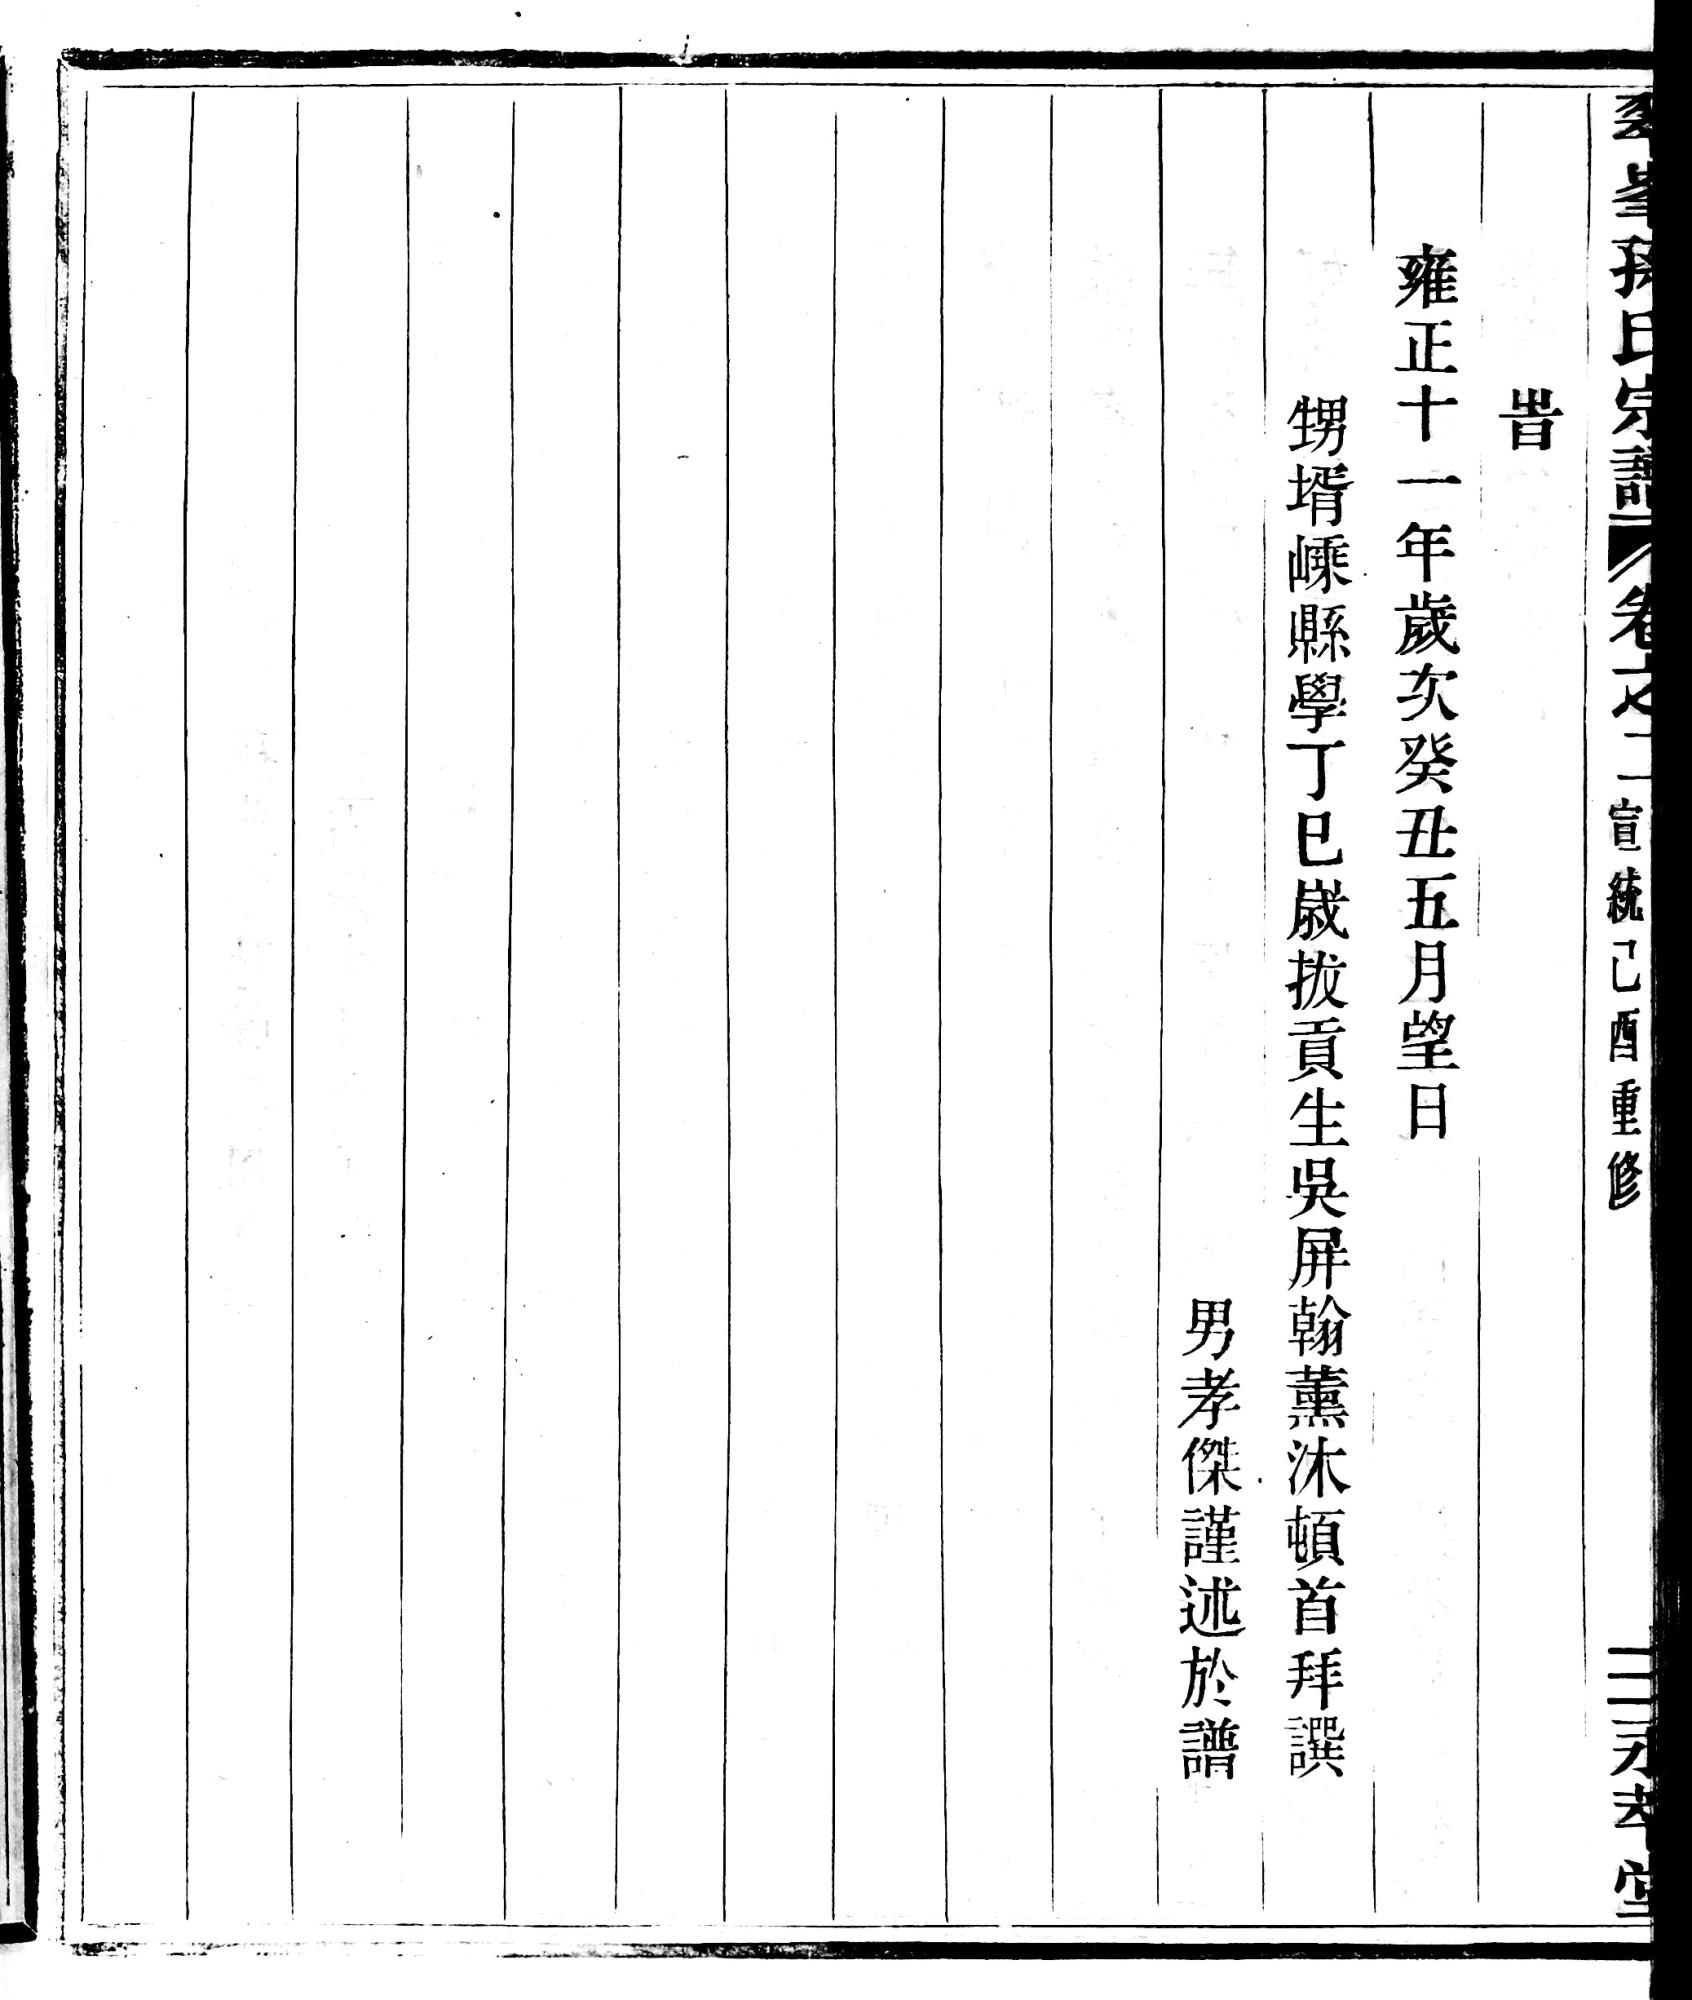 峯孫氏宗譜 卷之二 宣統己酉重修 三 永孝堂
旹
雍正十一年歲次癸丑五月望日
甥壻嵊縣學丁巳嵗拔貢生吳屏翰薰沐頓首拜譔
男孝傑謹述於譜